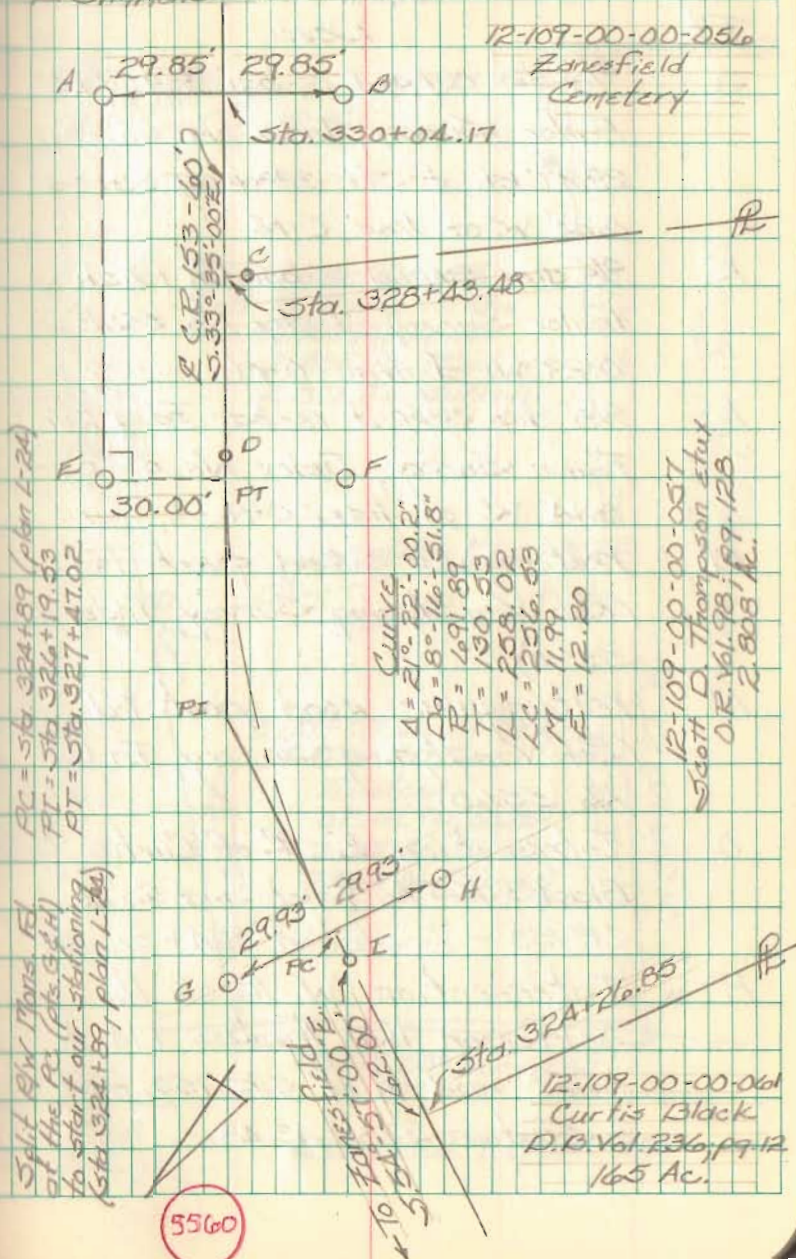 12-109-00-00-056
Zanesfield
Cemetery
A
29.85'
29.85'
B
Sta. 330+04.17
℄ C.R. 153-60'
S.33°-35'-00"E.
C
℄
Sta. 328+43.48
E
D
PT
F
30.00'
PC = Sta. 324+89 (plan L-24)
PI = Sta. 326+19.53
PT = Sta. 327+47.02
Curve
Δ = 21°-22'-00.2"
Da = 8°-16'-51.8"
R = 691.89
T = 130.53
L = 258.02
LC = 256.53
M = 11.99
E = 12.20
12-109-00-00-057
Scott D. Thompson etux
O.R. Vol. 98, pg. 128
2.808 Ac.
PI
29.93'
29.93'
H
G
PC
I
Split R/W Mons. Fd.
at the PC (pts G & H)
to start our stationing
(sta 324+89, plan L-24)
To Zanesfield
Sta. 324+26.85
℄
12-109-00-00-061
Curtis Black
D.B. Vol. 236, pg. 12
165 Ac.
5560